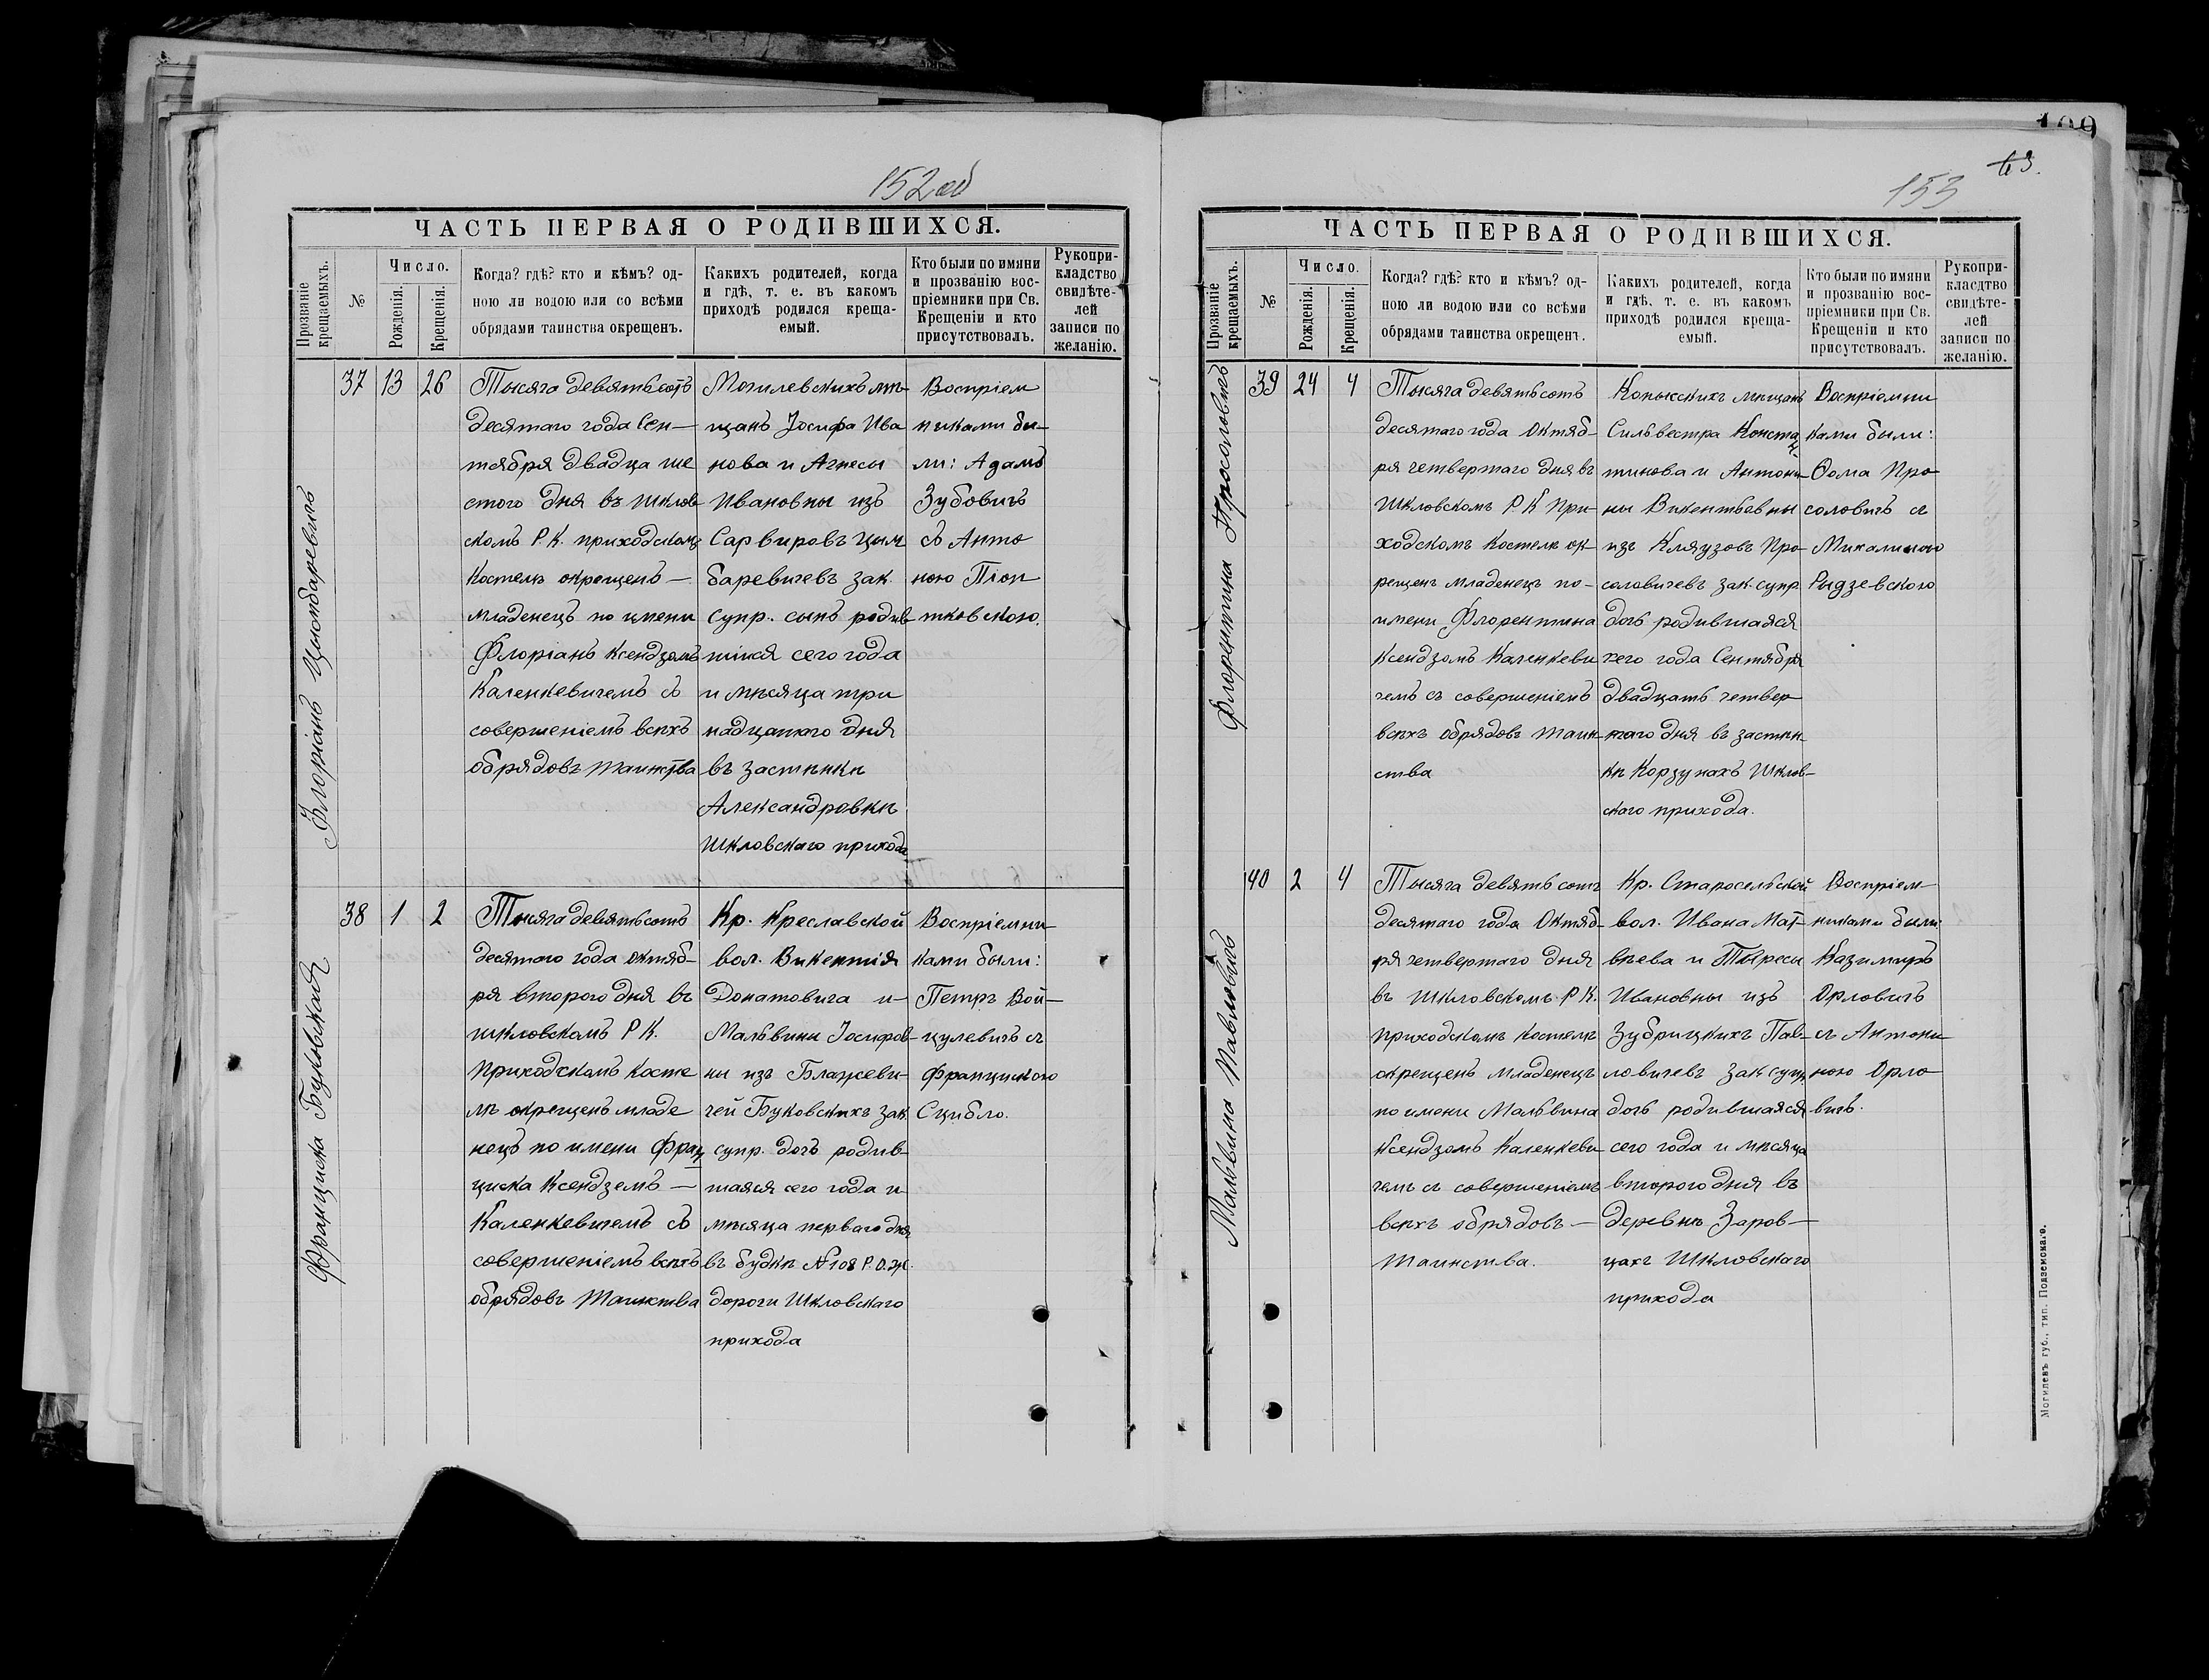 152 об
ЧАСТЬ ПЕРВАЯ О РОДИВШИХСЯ.
Прозваніе крещаемыхъ.
№
Число.
Рожденія.
Крещенія.
Когда? гдѣ? кто и кѣмъ? од-
ною ли водою или со всѣми
обрядами таинства окрещенъ.
Какихъ родителей, когда
и гдѣ, т. е. въ какомъ
приходѣ родился креща-
емый.
Кто были по имяни
и прозванію вос-
пріемники при Св.
Крещеніи и кто
присутствовалъ.
Рукопри-
кладство
свидѣте-
лей
записи по
желанію.
Флоріанъ Цюнбаревичъ
37 13 26
Тысяча девятьсотъ
десятаго года Сен-
тября двадца ше
стого дня въ Шклов
скомъ Р. К. приходскомъ
костелѣ окрещенъ —
младенецъ по имени
Флоріанъ Ксендзомъ
Каленкевичемъ съ
совершеніемъ всѣхъ
обрядовъ таинства
Могилевскихъ мѣ-
щанъ Іосифа Ива
нова и Агнесы
Ивановны изъ
Сарвировъ Цюн
баревичевъ зак.
супр. сынъ родив
шійся сего года
и мѣсяца три
надцатаго дня
въ застѣнкѣ
Александровкѣ
Шкловскаго прихода
Воспріем
никами бы-
ли: Адамъ
Зубовичъ
съ Анто
ною Піоп
тковскою.
Франциска Буковская
38 1 2
Тысяча девятьсотъ
десятаго года октяб-
ря второго дня въ
шкловскомъ Р К.
приходскомъ косте
лѣ окрещенъ младе
нецъ по имени Фран
циска Ксендземъ —
Каленкевичемъ съ
совершеніемъ всѣхъ
обрядовъ Таинства
Кр. Креславской
вол. Викентія
Донатовича и-
Мальвины Іосифов-
ны изъ Блажеви-
чей Буковскихъ зак
супр. дочь родив-
шаяся сего года и
мѣсяца перваго дня
въ будкѣ №108 Р.О.ж.
дороги Шкловскаго
прихода
Воспріемни-
ками были:
Петръ Вой-
цулевичъ съ
Францискою
Сцибло.
109
63.
153
ЧАСТЬ ПЕРВАЯ О РОДИВШИХСЯ.
Прозваніе крещаемыхъ.
№
Число.
Рожденія.
Крещенія.
Когда? гдѣ? кто и кѣмъ? од-
ною ли водою или со всѣми
обрядами таинства окрещенъ.
Какихъ родителей, когда
и гдѣ. т. е. въ какомъ
приходѣ родился креща-
емый.
Кто были по имяни
и прозванію вос-
пріемники при Св.
Крещеніи и кто
присутствовалъ.
Рукопри-
класдтво
свидѣте-
лей
записи по
желанію.
Флорентина Просоловичъ
39 24 4
Тысяча девятьсотъ
десятаго года Октяб-
ря четвертаго дня въ
Шкловскомъ Р. К при-
ходскомъ костелѣ ок-
рещенъ младенецъ по-
имени Флорентина
Ксендзомъ Каленкеви
чемъ съ совершеніемъ
всѣхъ обрядовъ таин-
ства
Копысскихъ мѣщанъ
Сильвестра Констан
тинова и Антони-
ны Викентьевны
изъ Кляузовъ Про-
соловичевъ зак. супр.
дочь родившаяся
сего года Сентября
двадцать четвер-
таго дня въ застѣн-
кѣ Корзунахъ Шклов-
скаго прихода.
Воспріемни
ками были:
Ѳома Про
соловичъ съ
Михалиною
Рыдзевскою
Мальвина Павловичъ
40 2 4
Тысяча девятьсотъ
десятаго года Октяб-
ря четвертаго дня
въ Шкловскомъ Р К.
приходскомъ костелѣ
окрещенъ младенецъ
по имени Мальвина
Ксендзомъ Каленкеви
чемъ съ совершеніемъ
всѣхъ обрядовъ —
Таинства.
Кр. Старосельской
вол. Ивана Мат-
вѣева и Тересы
Ивановны изъ
Зубрицкихъ Пав-
ловичевъ зак супр
дочь родившаяся
сего года и мѣсяца
второго дня въ
деревнѣ Заров-
цахъ Шкловскаго
прихода
Воспріем-
никами были:
Казимиръ
Орловичъ
съ Антони-
ною Орло
вичъ.
Могилевъ губ., тип. Подземскаго.